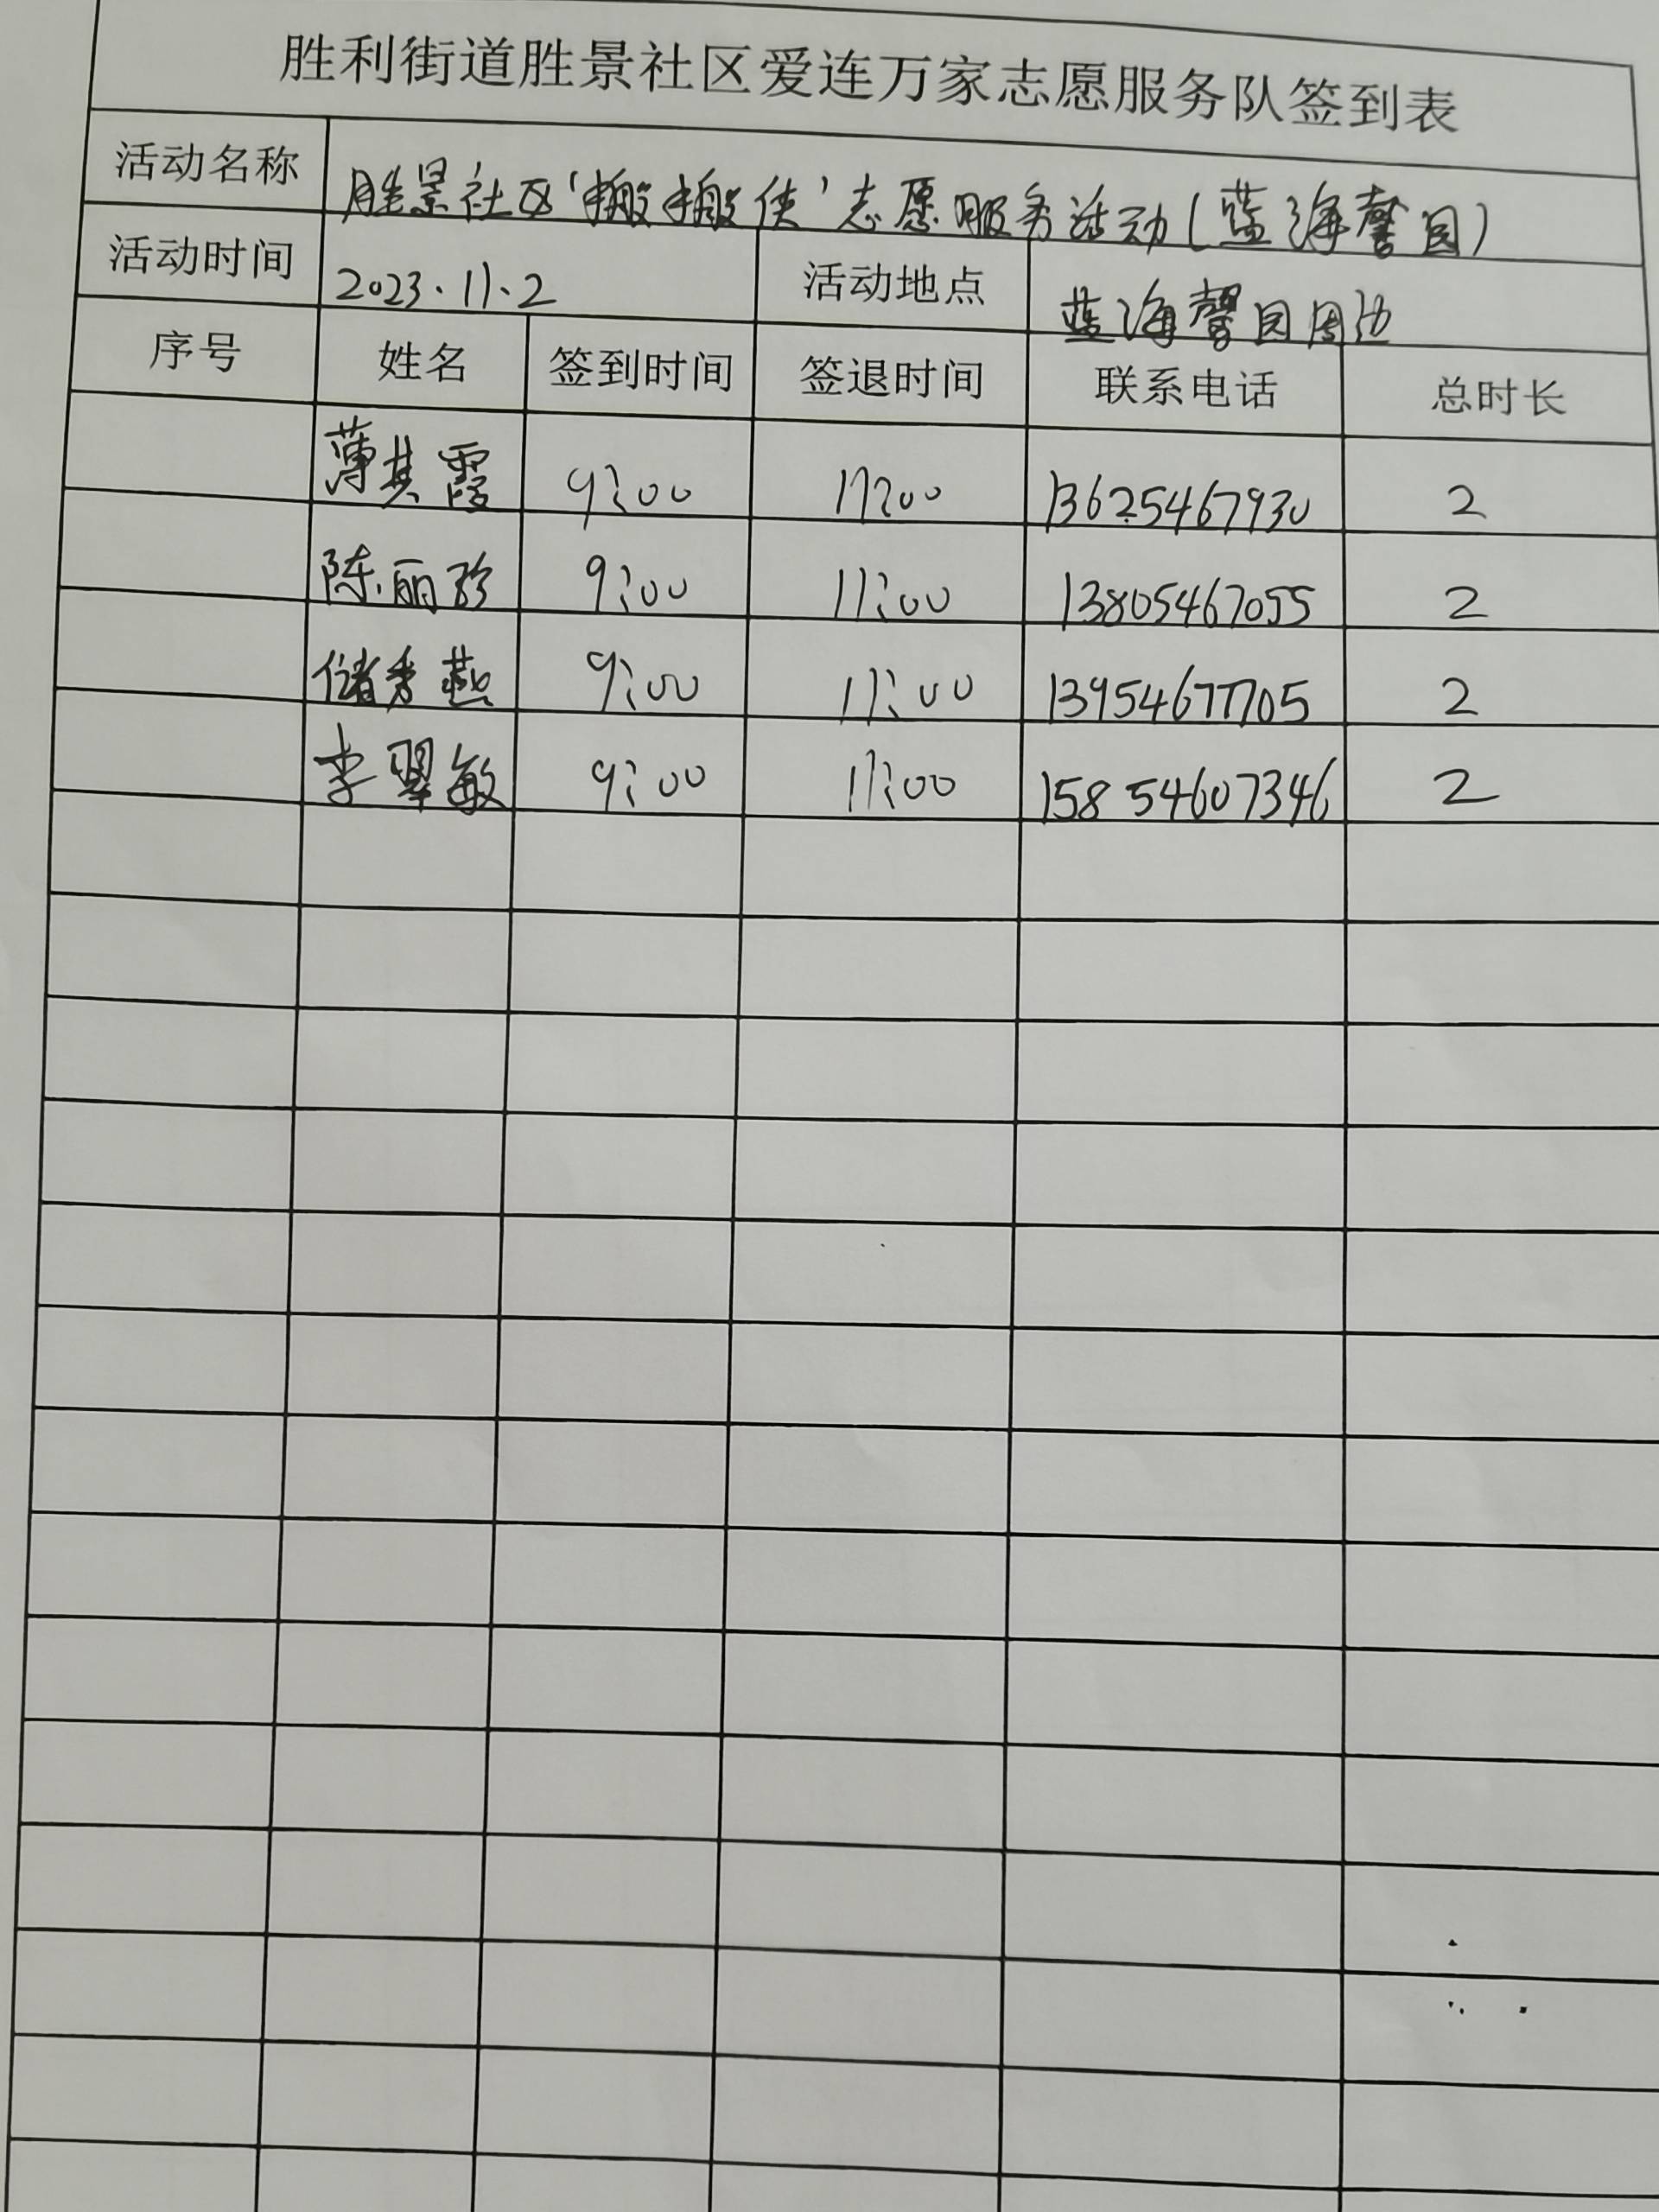 胜利街道胜景社区爱连万家志愿服务队签到表
活动名称 胜景社区‘搬搬侠’志愿服务活动(蓝海馨园)
活动时间 2023.11.2 活动地点 蓝海馨园周边
序号 姓名 签到时间 签退时间 联系电话 总时长
薄其霞 9:00 11:00 13625467930 2
陈丽珍 9:00 11:00 13805467055 2
储秀燕 9:00 11:00 13954677705 2
李翠敏 9:00 11:00 15854607346 2